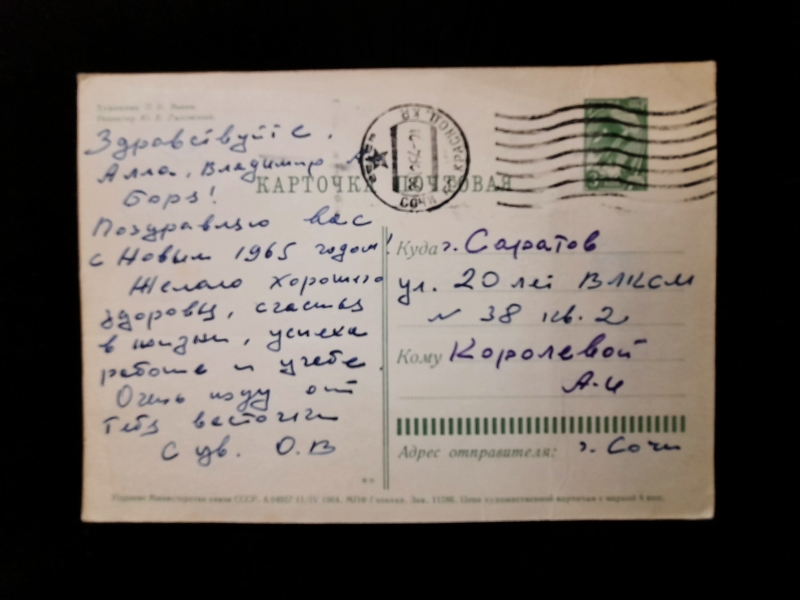 Здравствуйте.
Алла, Владимир и
Боря!
Поздравляю вас
с Новым 1965 годом!
Желаю хорошего
здоровья, счастья
в жизни, успеха
работе и учебе.
Очень жду от
тебя весточки
С ув. О.В
КАРТОЧКА ПОЧТОВАЯ
СОЧИ
Куда г. Саратов
ул. 20 лет ВЛКСМ
N 38 кв. 2
Кому Королевой
А-и
Адрес отправителя: г. Сочи
Издание Министерства связи СССР. 1964. МПФ Гознака. Зак. Цена художественной карточки с маркой 4 коп.